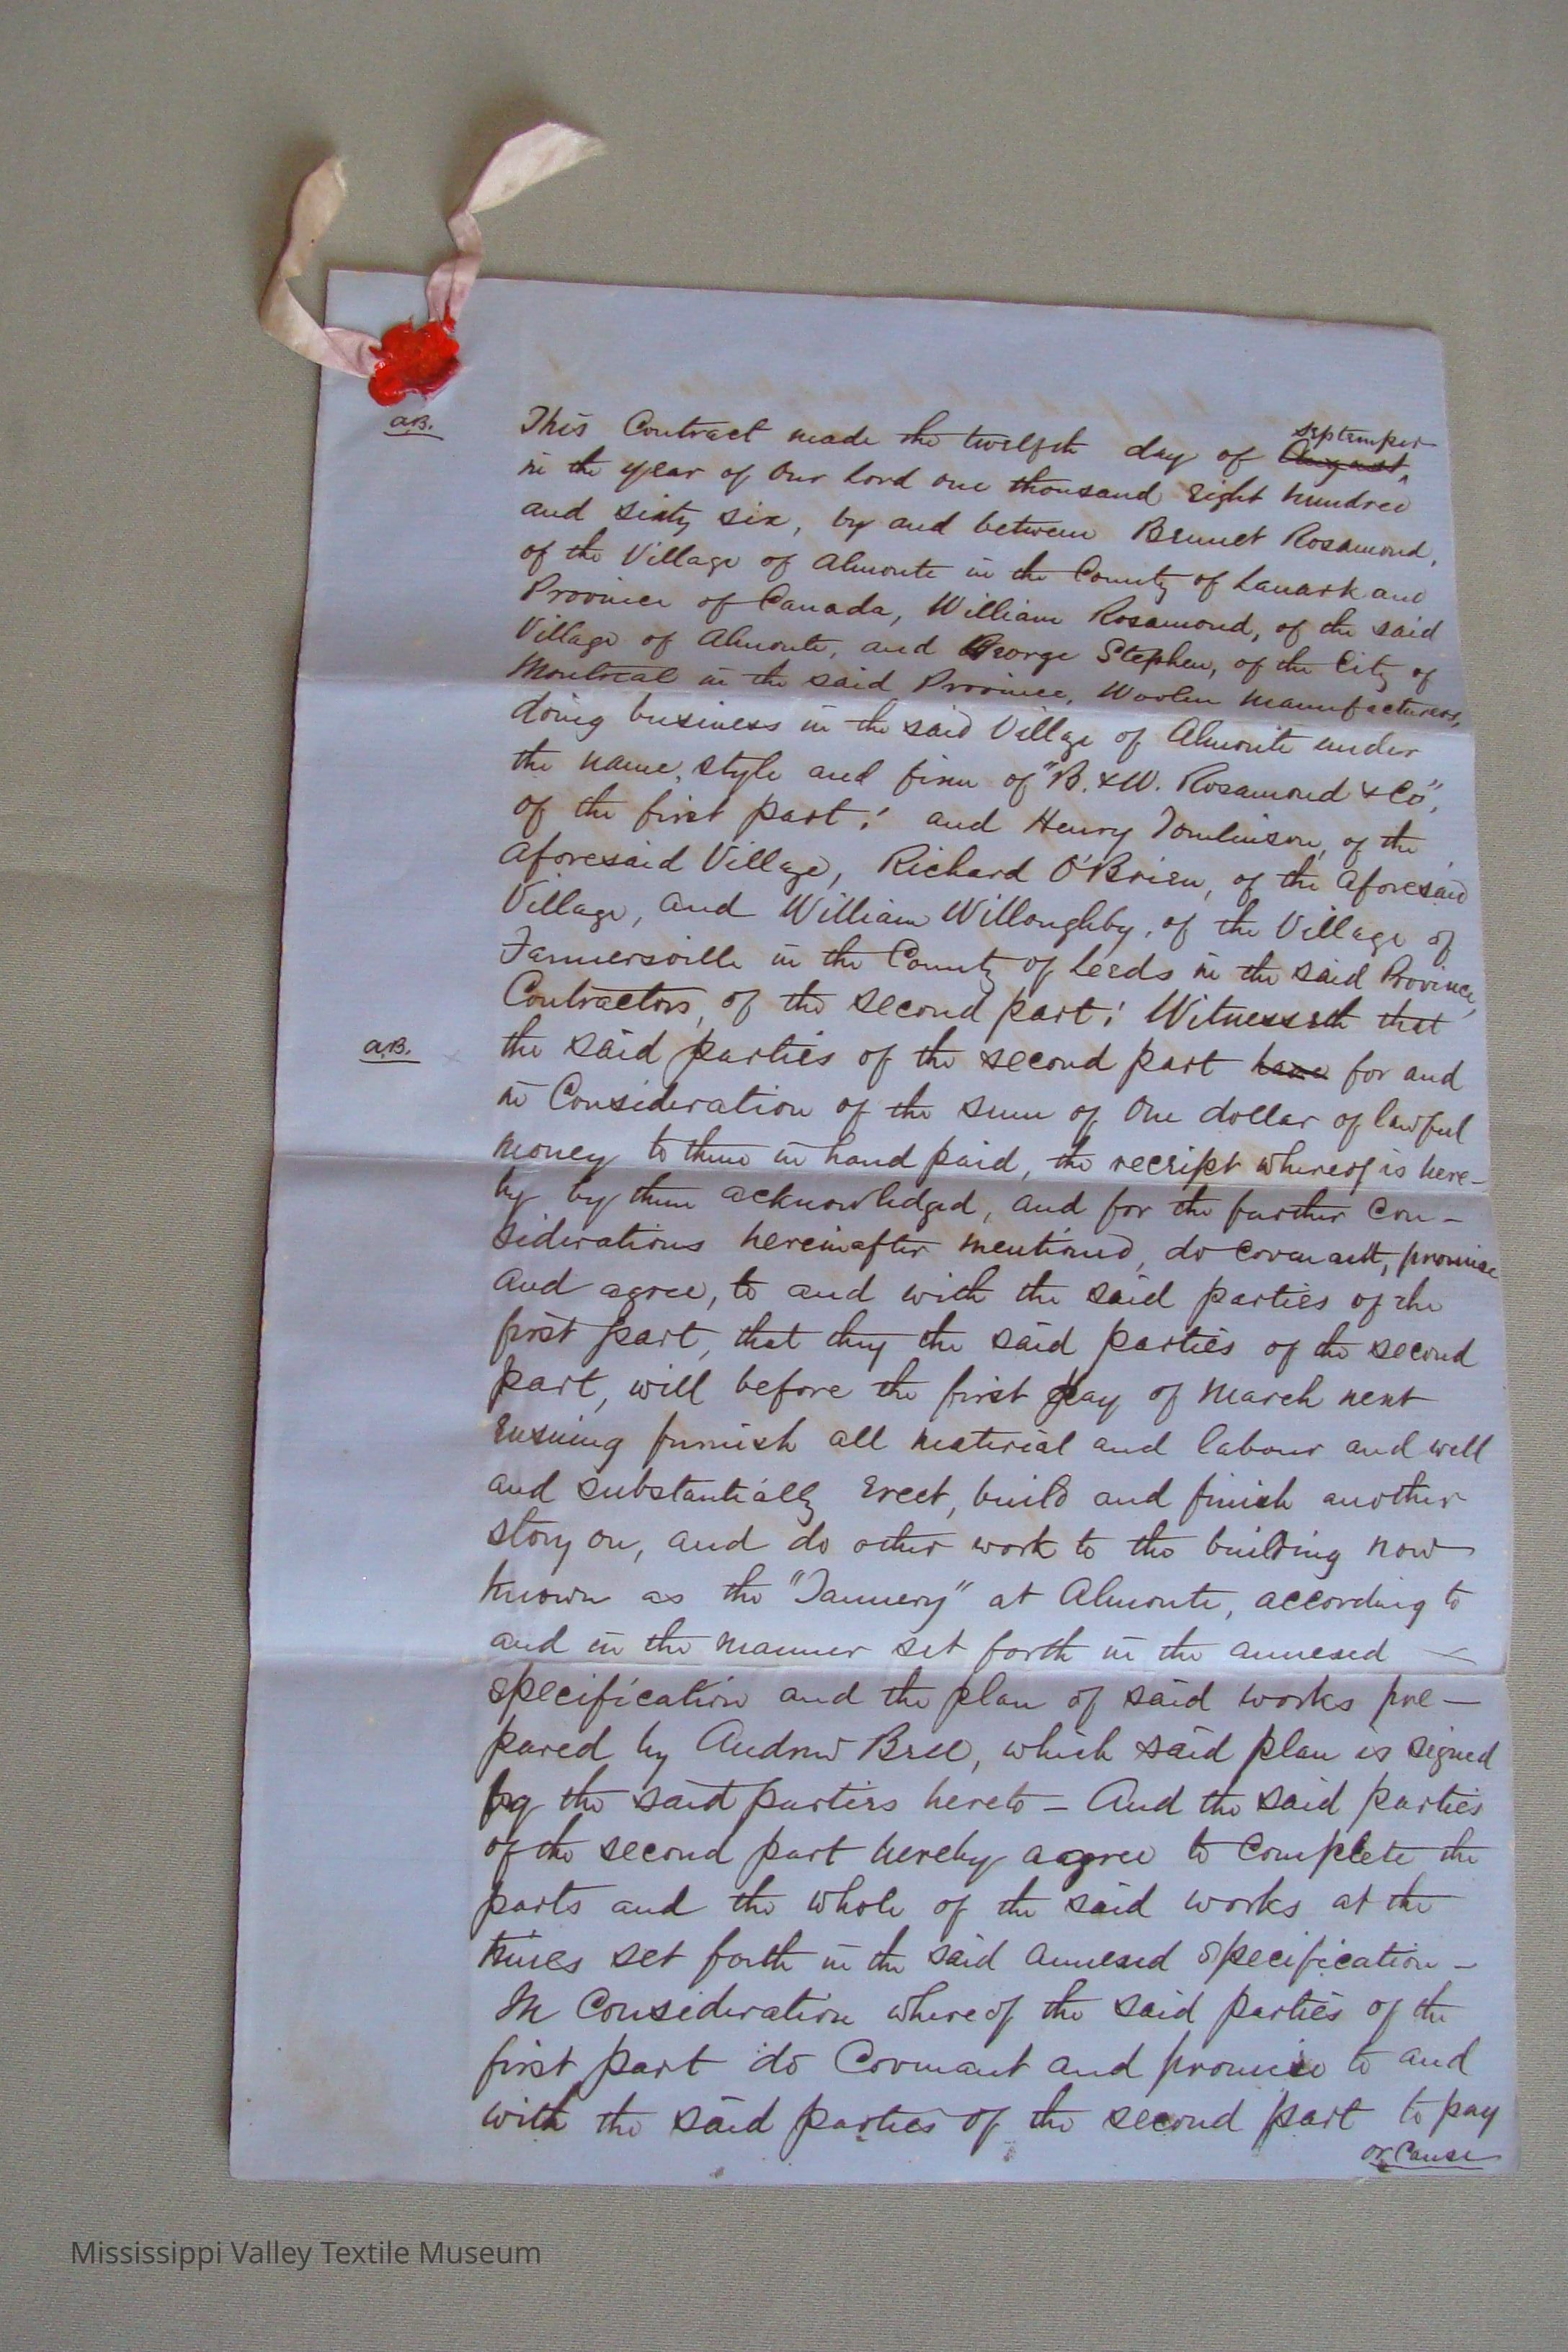 september
A.B. This Contract made the twelfth day of August,
in the year of Our Lord one thousand Eight hundred
and sixty six, by and between Bennet Rosamond,
of the Village of Almonte in the County of Lanark and
Province of Canada, William Rosamond, of the said
Village of Almonte, and George Stephen, of the City of
Montreal in the said Province, Woolen Manufacturers,
doing business in the said Village of Almonte under
the name, style and firm of "B. & W. Rosamond & Co",
of the first part; and Henry Tomlinson, of the
aforesaid Village, Richard O'Brien, of the aforesaid
Village, and William Willoughby, of the Village of
Farmersville in the County of Leeds in the said Province,
Contractors, of the second part; Witnesseth that
A.B. the said parties of the second part have for and
in Consideration of the sum of One dollar of lawful
money to them in hand paid, the receipt whereof is here-
by by them acknowledged, and for the further Con-
siderations hereinafter mentioned, do covenant, promise
and agree, to and with the said parties of the
first part, that they the said parties of the second
part, will before the first day of March next
Ensuing furnish all material and labour and well
and substantially Erect, build and finish another
story on, and do other work to the building now
known as the "Tannery" at Almonte, according to
and in the manner set forth in the annexed
specification and the plan of said works pre-
pared by Andrew Bell, which said plan is signed
by the said parties hereto - And the said parties
of the second part hereby agree to complete the
parts and the whole of the said works at the
times set forth in the said annexed Specification -
In Consideration whereof the said parties of the
first part do Covenant and promise to and
with the said parties of the second part to pay
or Cause
Mississippi Valley Textile Museum